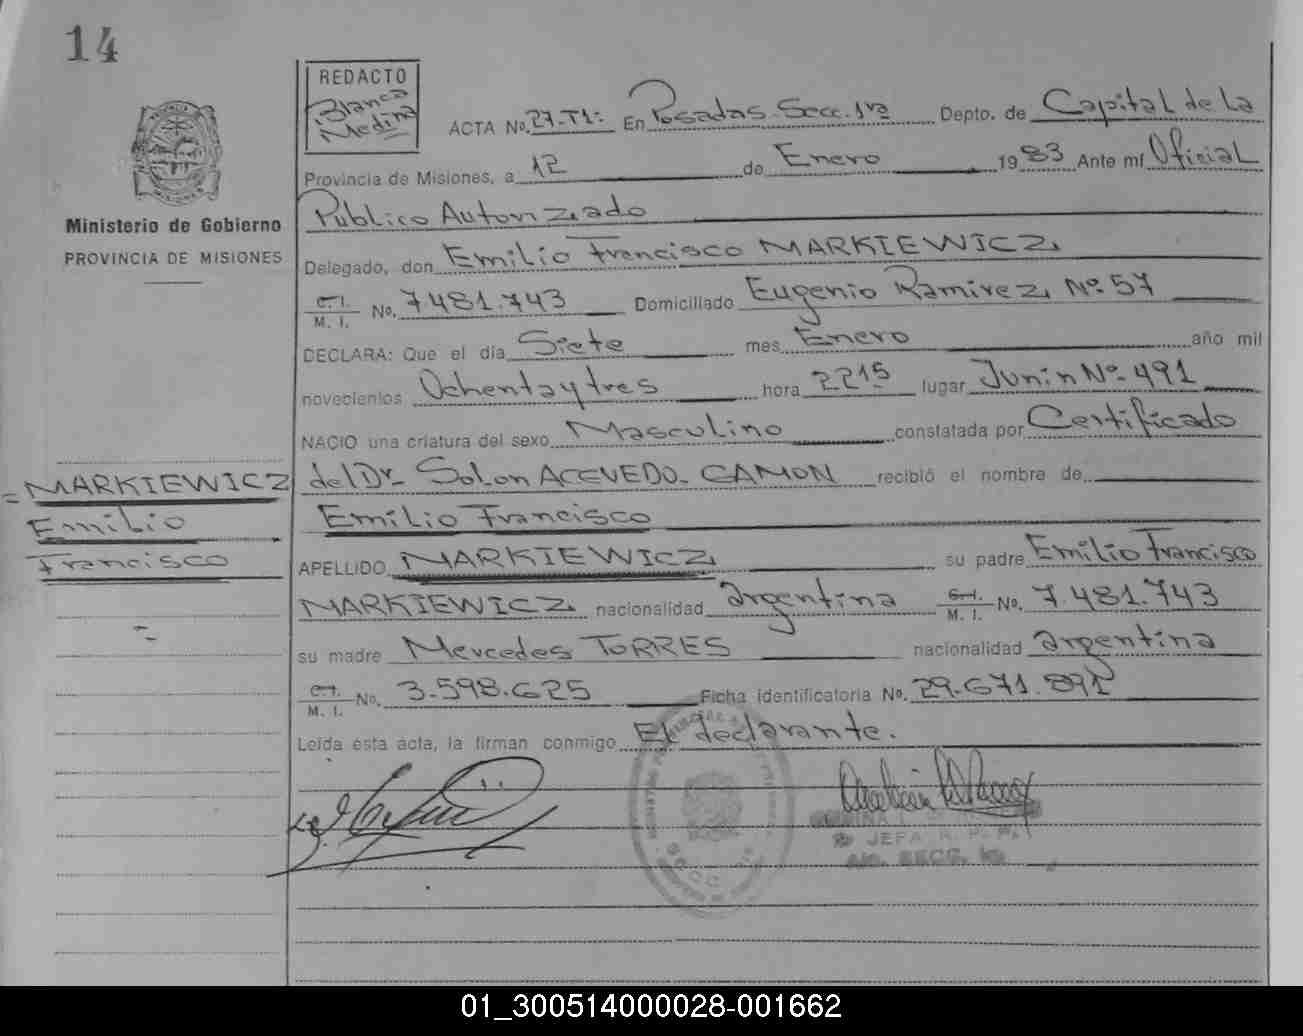 14
REDACTO
Blanca
Medina
ACTA No. 27-T1: En Posadas-Secc. 1ra Depto. de Capital de la
Provincia de Misiones, a 12 de Enero 1983 Ante mí Oficial
Ministerio de Gobierno
PROVINCIA DE MISIONES
Publico Autorizado
Delegado, don Emilio Francisco MARKIEWICZ
C.I.
M. I. No. 7481.743 Domiciliado Eugenio Ramirez Nº 57
DECLARA: Que el día Siete mes Enero año mil
novecientos Ochentaytres hora 2215 lugar Junin Nº 491
NACIO una criatura del sexo Masculino constatada por Certificado
del Dr. Solon ACEVEDO- CAMON recibió el nombre de
= MARKIEWICZ
Emilio
Francisco
Emilio Francisco
APELLIDO MARKIEWICZ su padre Emilio Francisco
MARKIEWICZ nacionalidad argentina C.I.
M. I. No. 7.481.743
su madre Mercedes TORRES nacionalidad argentina
C.I.
M. I. No. 3.598.625 Ficha identificatoria No. 29.671.891
Leída ésta acta, la firman conmigo El declarante.
JEFA R. P. P.
SECC.
01_300514000028-001662